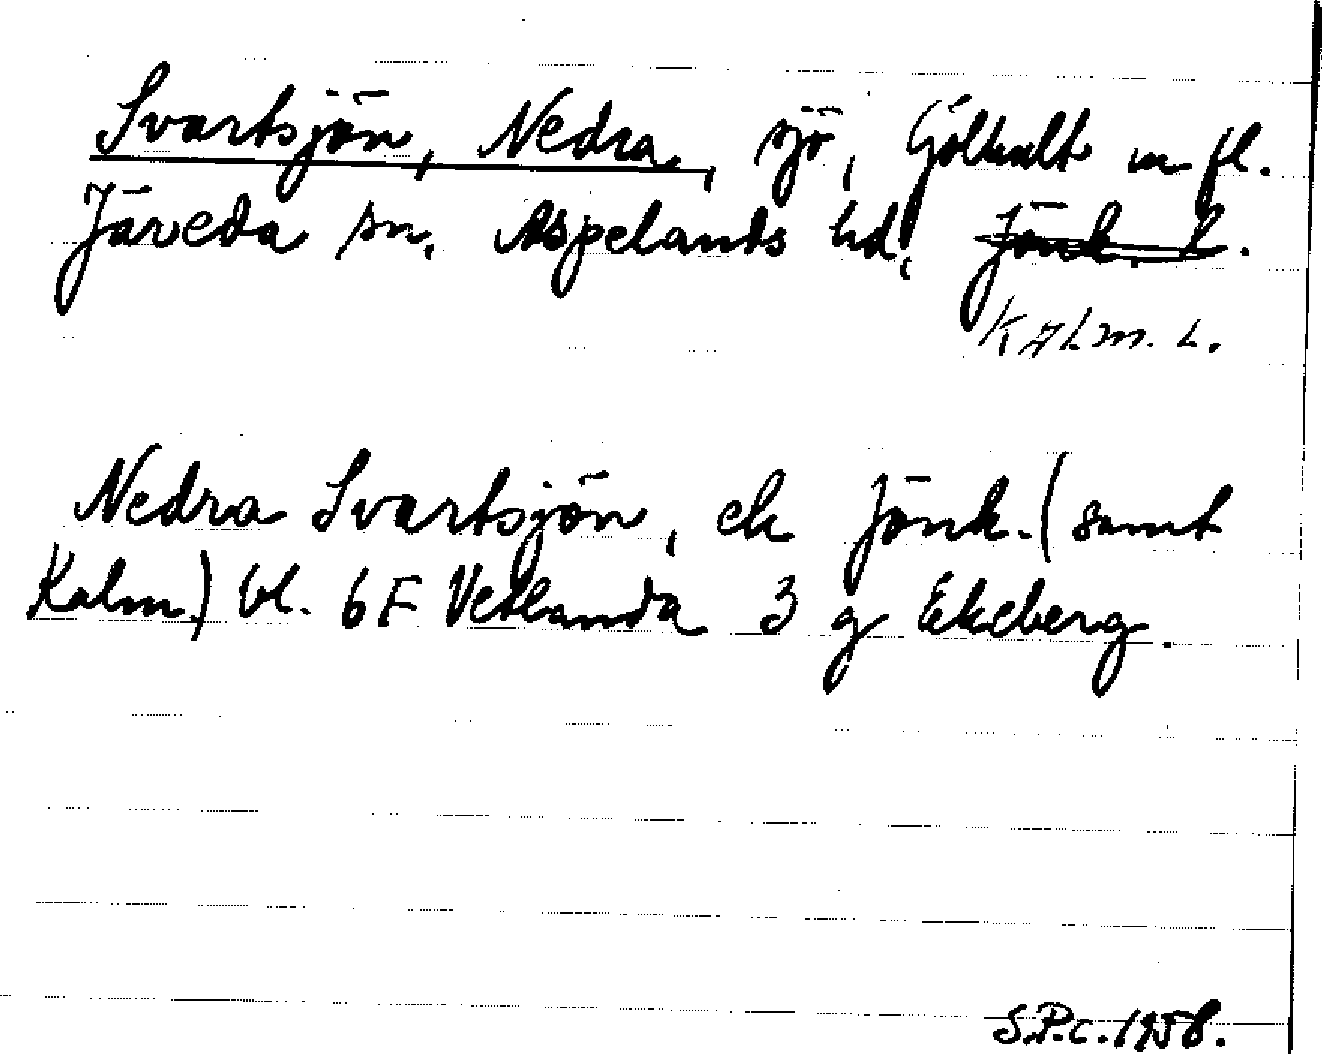 Svartsjön, Nedra, sjö, Gölhult m fl.
Järeda sn, Aspelands hd, Jönk. L.
KALM. L.
Nedra Svartsjön, ek Jönk. (samt
Kalm.) bl. 6F Vetlanda 3 g Ekeberg.
S.P.c. 1958.